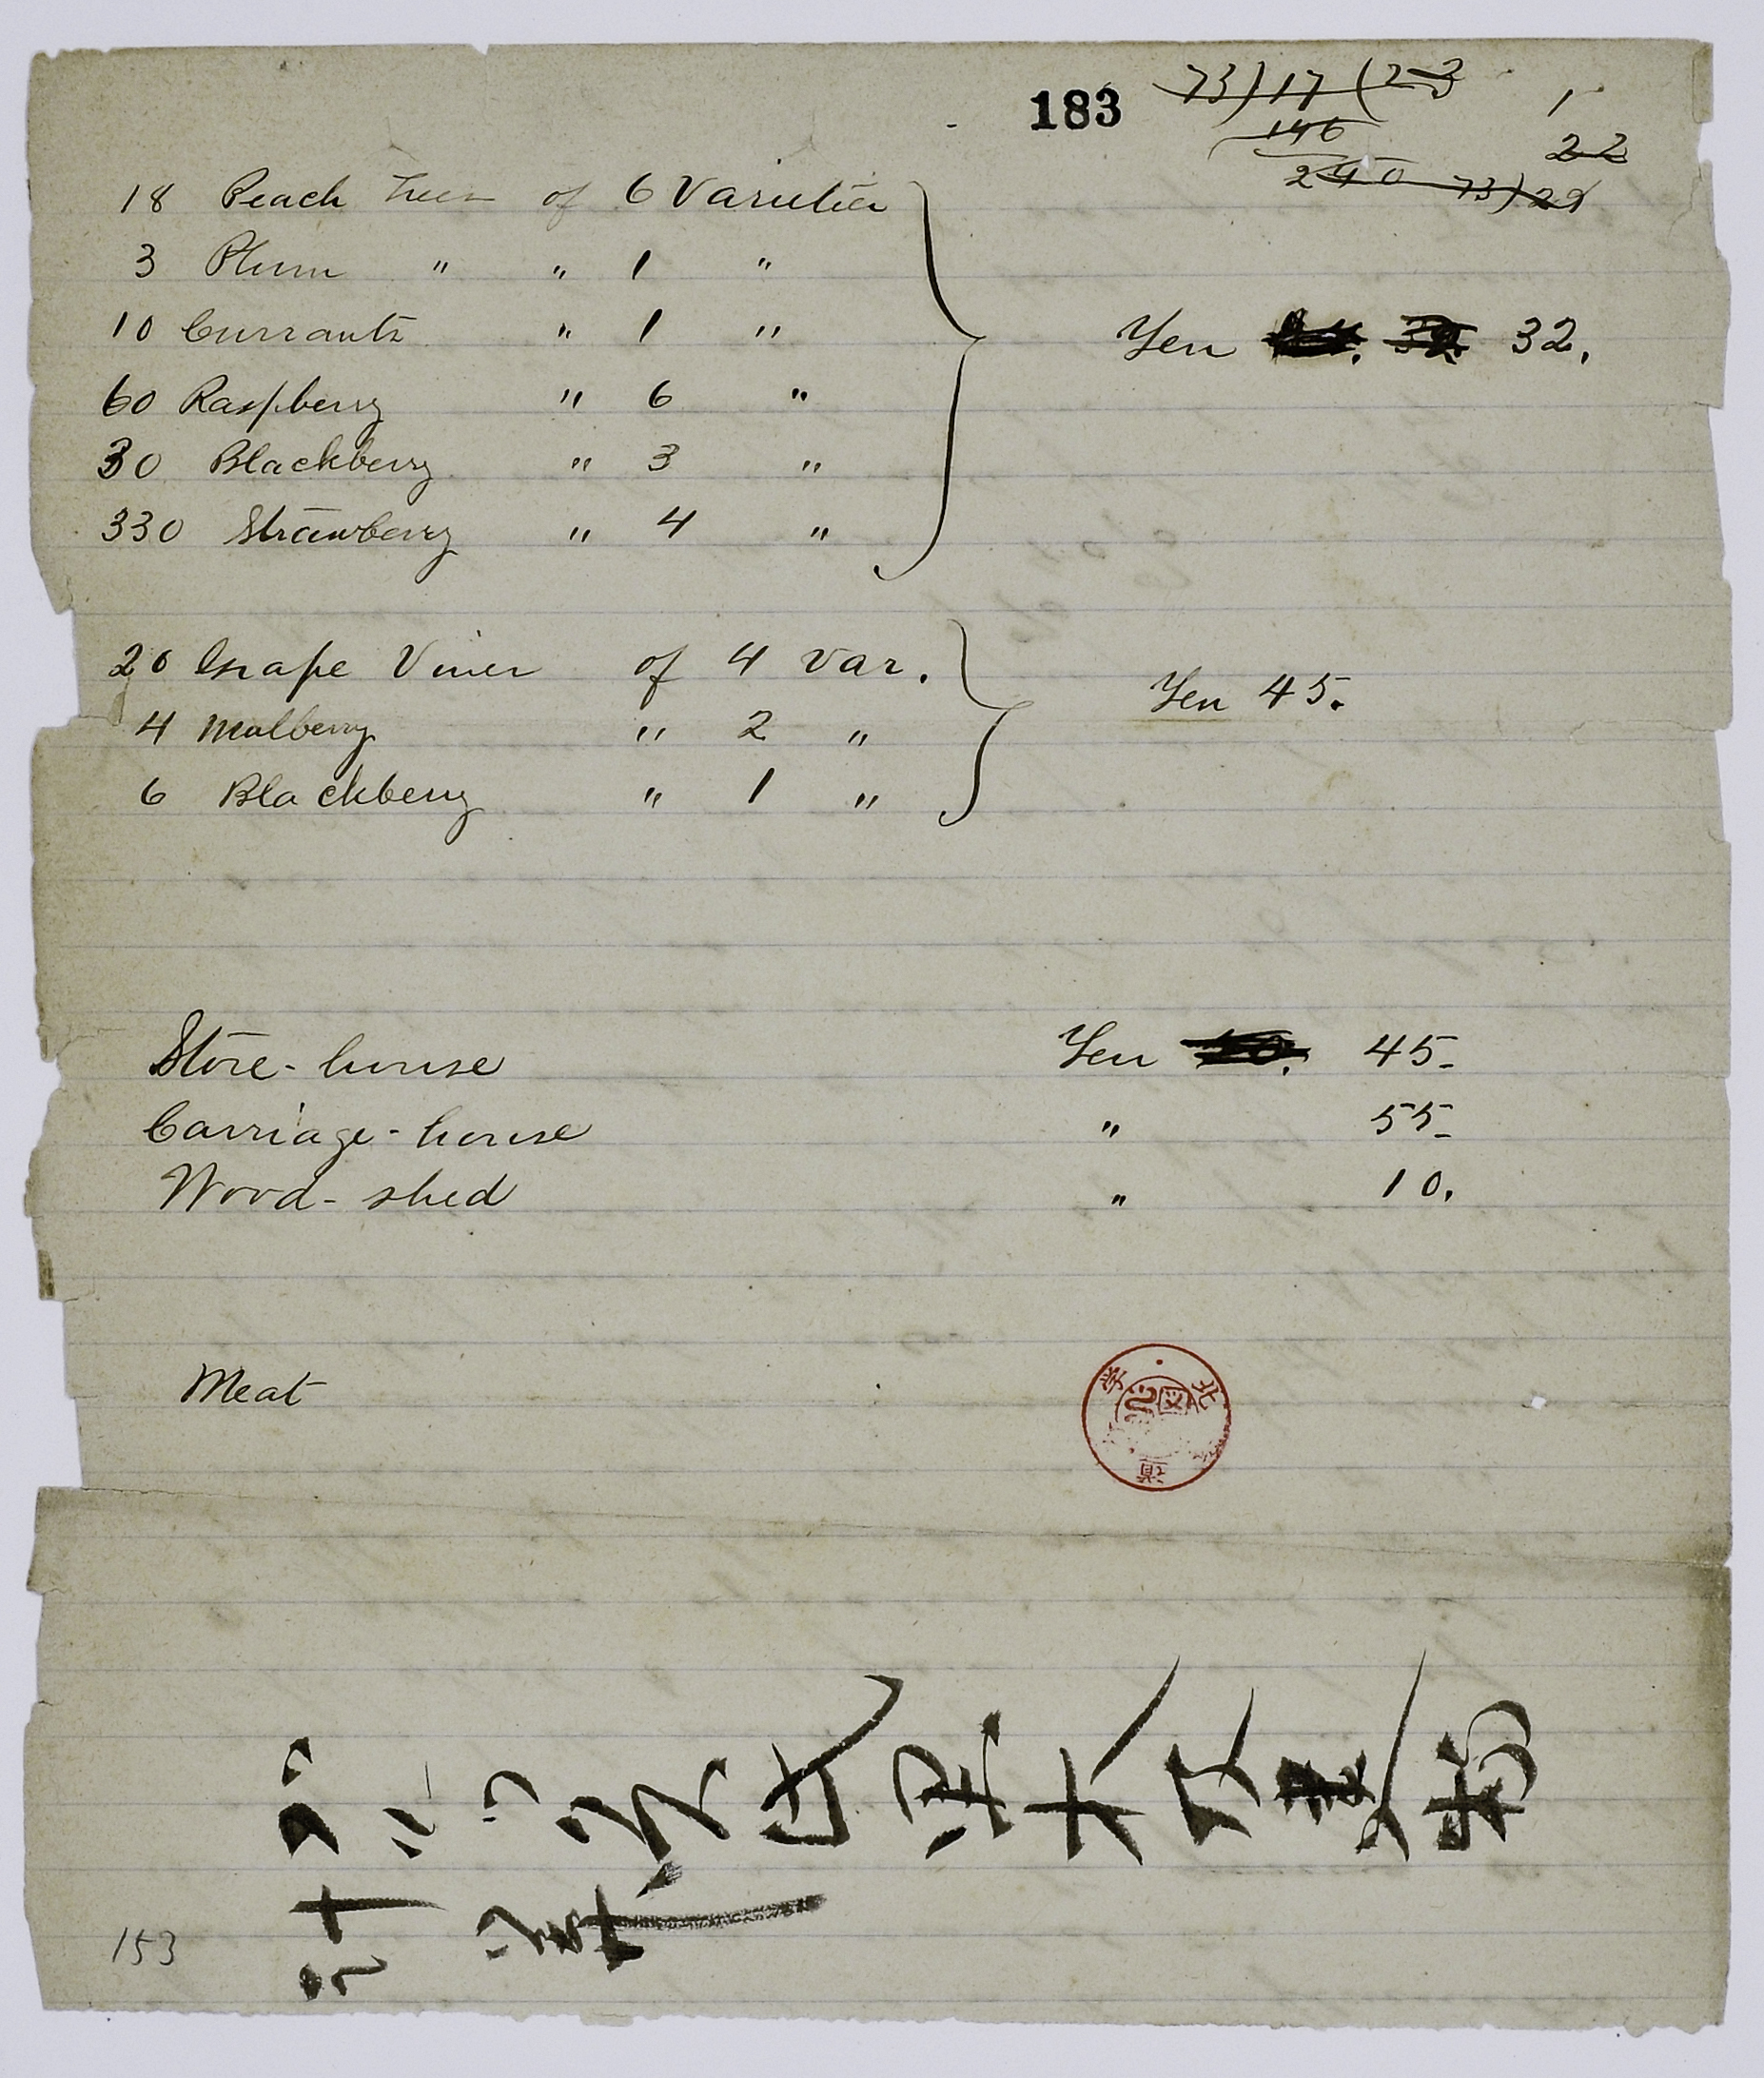 183 73)17(23
146
240 73)29
1
22
18 Peach Trees of 6 Varieties
3 Plum " " 1 "
10 Currants " 1 "
Yen 32.
60 Raspberry " 6 "
30 Blackberry " 3 "
330 Strawberry " 4 "
20 Grape Vines of 4 var.
Yen 45.
4 Mulberry " 2 "
6 Blackberry " 1 "
Store-house Yen 45-
Carriage-house " 55-
Wood-shed " 10.
Meat
153